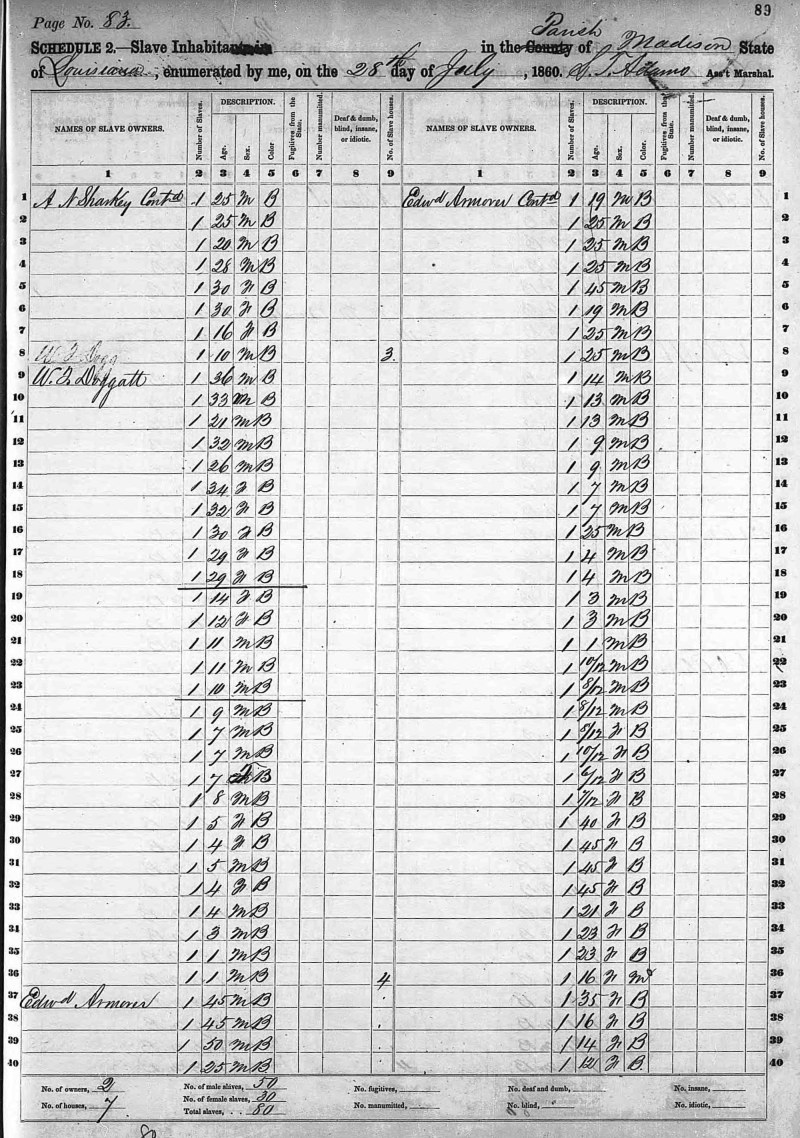 Page No. 83.
89
SCHEDULE 2.—Slave Inhabitants in in the County Parish of Madison State
of Louisiana, enumerated by me, on the 28th day of July, 1860. Ass't Marshal.
NAMES OF SLAVE OWNERS. Number of Slaves. DESCRIPTION. Age. Sex. Color. Fugitives from the State. Number manumitted. Deaf & dumb, blind, insane, or idiotic. No. of Slave houses. NAMES OF SLAVE OWNERS. Number of Slaves. DESCRIPTION. Age. Sex. Color. Fugitives from the State. Number manumitted. Deaf & dumb, blind, insane, or idiotic. No. of Slave houses.
1 2 3 4 5 6 7 8 9 1 2 3 4 5 6 7 8 9
1 A N Sharkey Contd 1 25 M B Edwd Armorer Contd 1 19 M B 1
2 1 25 M B 1 25 M B 2
3 1 20 M B 1 25 M B 3
4 1 28 M B 1 25 M B 4
5 1 30 F B 1 45 M B 5
6 1 30 F B 1 19 M B 6
7 1 16 F B 1 25 M B 7
8 1 10 M B 3 1 25 M B 8
9 W. F. Doggatt 1 36 M B 1 14 M B 9
10 1 33 M B 1 13 M B 10
11 1 21 M B 1 13 M B 11
12 1 32 M B 1 9 M B 12
13 1 26 M B 1 9 M B 13
14 1 34 F B 1 7 M B 14
15 1 32 F B 1 7 M B 15
16 1 30 F B 1 25 M B 16
17 1 29 F B 1 4 M B 17
18 1 29 F B 1 4 M B 18
19 1 14 F B 1 3 M B 19
20 1 12 F B 1 3 M B 20
21 1 11 M B 1 1 M B 21
22 1 11 M B 1 10/12 M B 22
23 1 10 M B 1 8/12 M B 23
24 1 9 M B 1 8/12 M B 24
25 1 7 M B 1 8/12 F B 25
26 1 7 M B 1 10/12 F B 26
27 1 7 F B 1 6/12 F B 27
28 1 8 M B 1 7/12 F B 28
29 1 5 F B 1 40 F B 29
30 1 4 F B 1 45 F B 30
31 1 5 M B 1 45 F B 31
32 1 4 F B 1 45 F B 32
33 1 4 M B 1 21 F B 33
34 1 3 M B 1 23 F B 34
35 1 1 M B 1 23 F B 35
36 1 1 M B 4 1 16 F M 36
37 Edwd Armorer 1 45 M B 1 35 F B 37
38 1 45 M B 1 16 F B 38
39 1 50 M B 1 14 F B 39
40 1 25 M B 1 12 F B 40
No. of owners, 2 No. of male slaves, 50 No. fugitives, No. deaf and dumb, No. insane,
No. of houses, 7 No. of female slaves, 30 No. manumitted, No. blind, No. idiotic,
Total slaves, 80
80